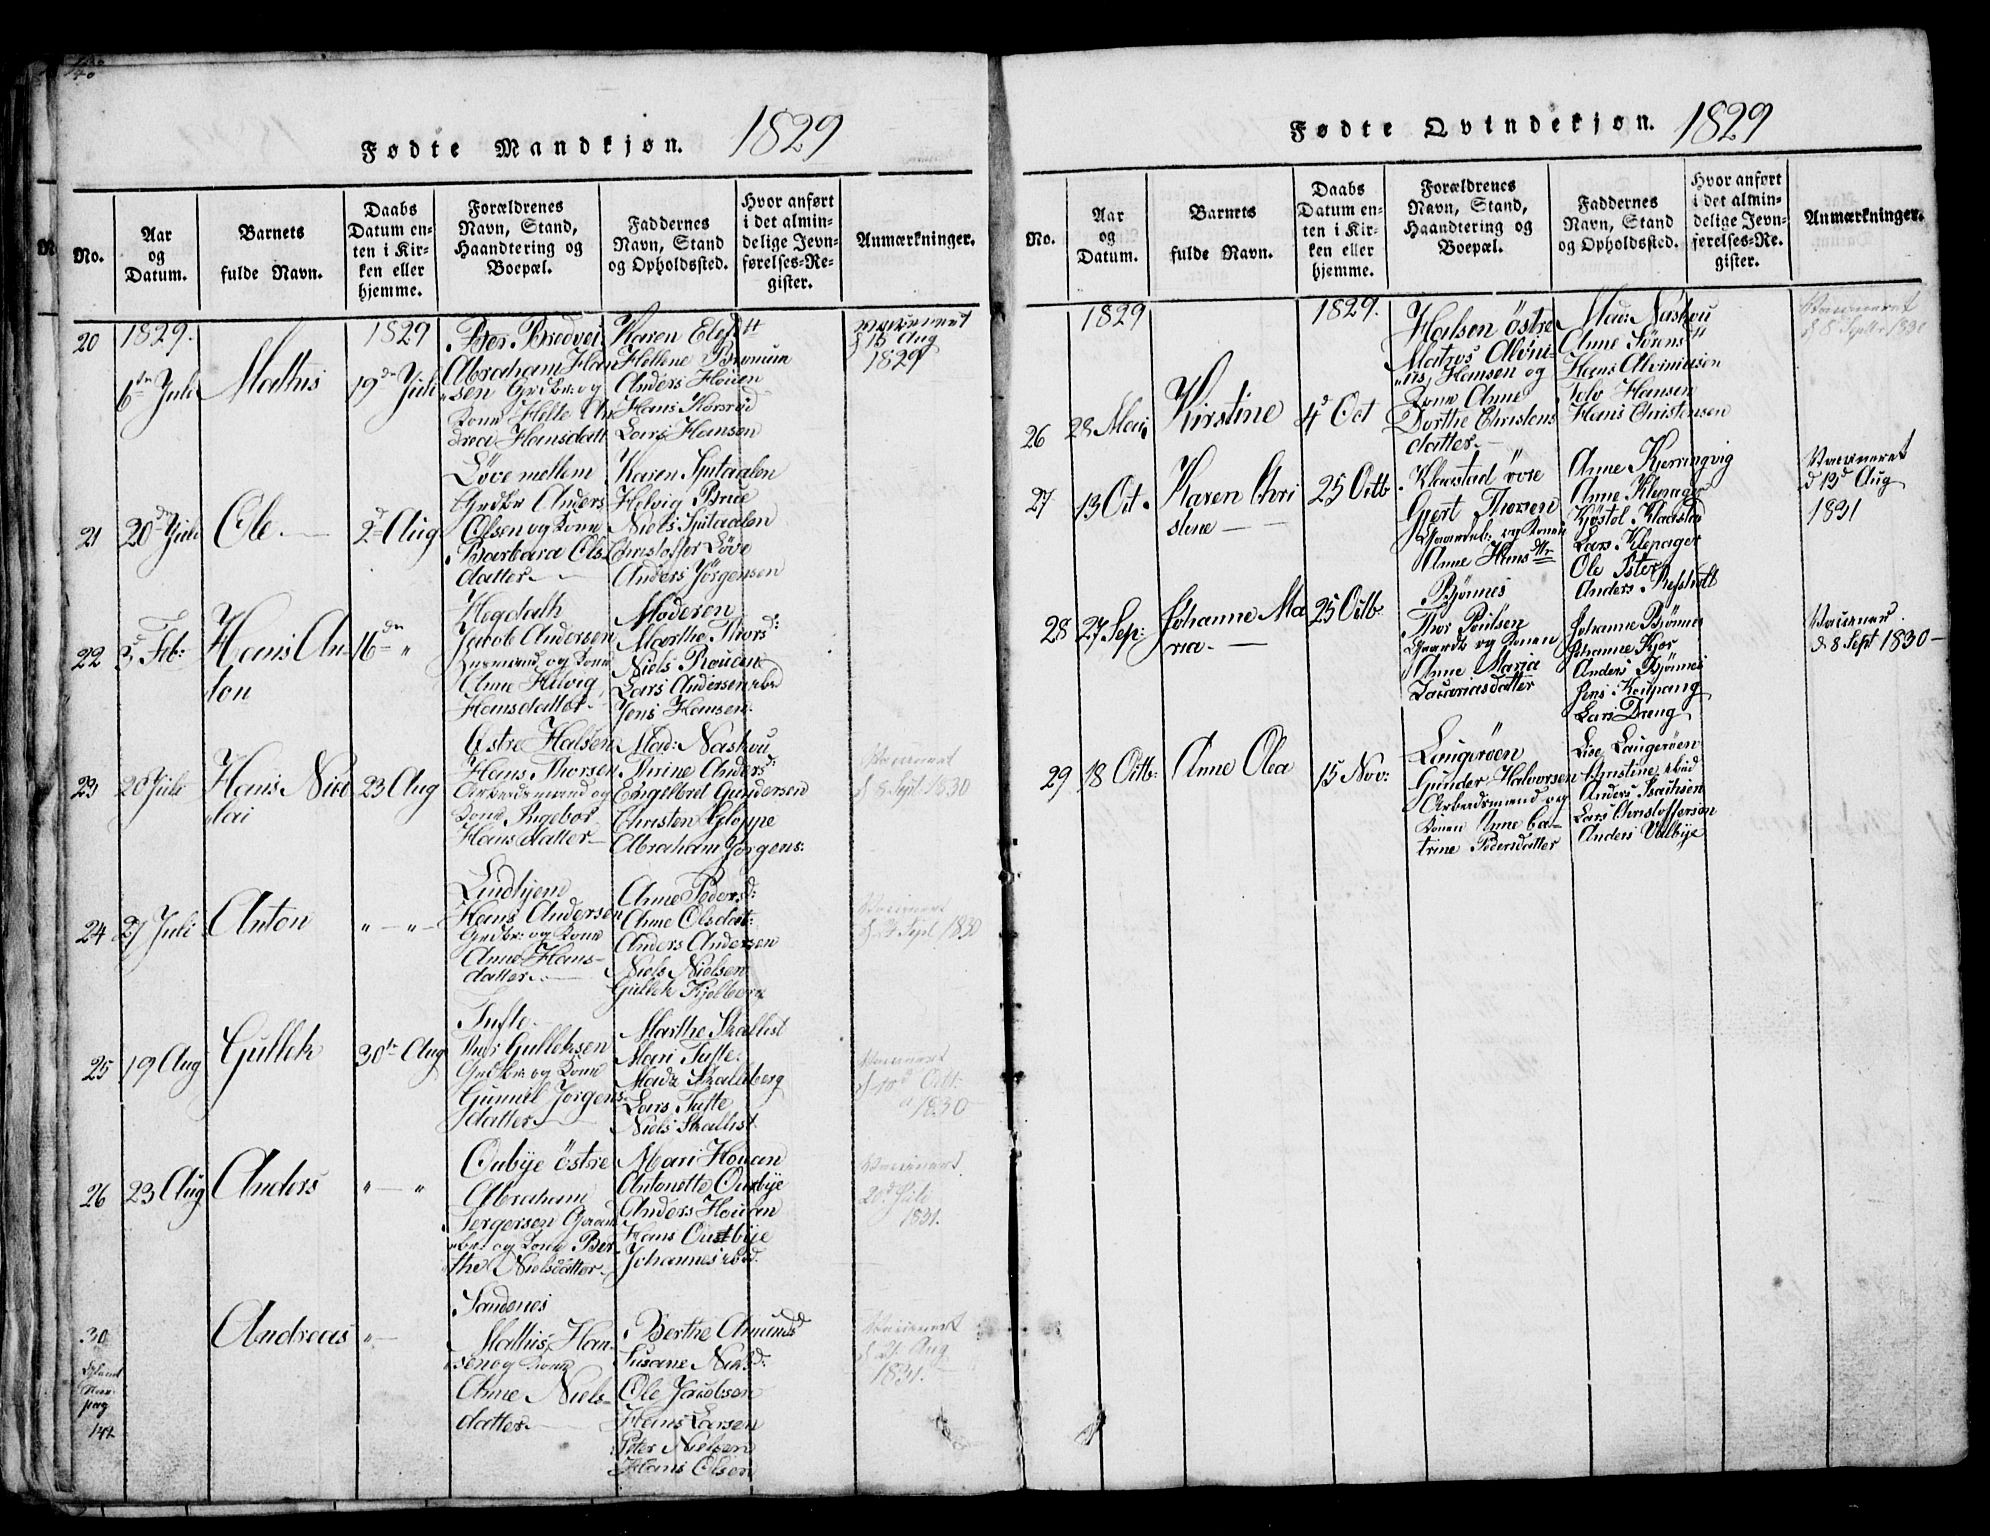 140
Fødte Mandkjøn. 1829
No.
Aar
og
Datum.
Barnets
fulde Navn.
Daabs
Datum en-
ten i Kir-
ken eller
hjemme.
Forældrenes
Navn, Stand,
Haandtering og
Boepæl.
Faddernes
Navn, Stand
og Opholdssted.
Hvor anført
i det almin-
delige Jevn-
førelses-Re-
gister.
Anmærkninger.
20
1829.
6te Juli
Mathis
1829
19de Juli
Abraham Han
sen Grdbr: og
Kone Helle An
drea Hansdatt
Karen
Hellene
Anders Houen
Hans Korsrød
Lars Hansen
Vaccineret
d 16 Aug
1829
21
20de Juli
Ole
2d Aug
Løve mellem
Grdbr Anders
Olsen og Kone
Barbara Ols
datter
Karen Sputaalen
Helvig Brue
Niels Sputaalen
Christoffer Løve
Anders Jörgensen
22
5 Feb:
Hans An
ton
16de "
Hegdath
Jacob Andersen
Huusmand og Kone
Anne Helvig
Hansdatter
Moderen
Marthe Thorsd:
Niels Rouen
Lars Andersen ibid
Jens Hansen
23
20 Juli
Hans Nico
lai
23 Aug
Østre Halsen
Hans Thorsen
Arbeidsmand og
Kone Ingebor
Hansdatter
Mad: Naskou
Thrine Andersd:
Engelbret Gundersen
Christen Gloppe
Abraham Jörgens:
Vaccineret
d 8 Sept. 1830
24
27 Juli
Anton
" — " —
Lindhjem
Hans Andersen
Grdbr: og Kone
Anne Hans-
datter
Anne Pedersd:
Anne Olsdat:
Anders Andersen
Niels Nielsen
Gullek Kjelberg
Vaccineret
Sept 1830
25
19 Aug
Gullek
30te Aug
Tufte
Thor Gulleksen
Grdbr: og Kone
Gunnil Jorgens
datter
Marthe Skallist
Mari Tufte
Madz Skalleberg
Lars Tufte
Niels Skallist
Vaccineret
1830
26
23 Aug
Anders
" — "
Oulbye östre
Abraham
Jergersen Gaard
br: og Kone Ber
the Nielsdatter
Mari Houan
Antonette Oustbye
Anders Houan
Hans Oustbye
Johannes ibid
Vaccineret
20d Juli
1831.
30
pag
142
Andreas
" —
Sandenes
Mathis Han
sen og Kone
Anne Niels
datter
Berthe Amundsd
Susane Nielsd:
Ole Jacobsen
Hans Larsen
Peter Nielsen
Hans Olsen
Vaccineret
d 21 Aug
1831.
Fødte Qvindekjøn. 1829
No.
Aar
og
Datum.
Barnets
fulde Navn.
Daabs
Datum en-
ten i Kir-
ken eller
hjemme.
Forældrenes
Navn, Stand,
Haandtering og
Boepæl.
Faddernes
Navn, Stand
og Opholdssted.
Hvor anført
i det almin-
delige Jevn-
førelses-Re-
gister.
Anmærkninger.
26
1829
28 Mai
Kirstine
1829.
4d Oct
Halsen östre
Matros Alvini-
us Hansen og
Kone Anne
Dorthe Christens
datter
Mad: Naskou
Anne Sørens
Hans Alviniusen
Solv Hansen
Hans Christensen
Vaccineret
d 8 Septbr 1830
27
13 Oct.
Karen Chri
stine
25 Octb
Klaastad övre
Gjert Thorsen
Gaardbr: og Konen
Anne Hansdtr
Anne Kjerringvig
Anne Klepager
Kjöstol Klaastad
Lars Klepager
Ole
Anders
Vaccineret
d 13d Aug
1831
28
27 Sep:
Johanne Ma
ria
25 Octb
Bjönnes
Thor Poulsen
Gaardb og Konen
Anne Maria
Zacariasdatter
Johanne Bjönnes
Johanne Kjær
Anders Bjönnes
Jens Kaupang
Lars Dreng
Vaccineret
d. 8 Sept 1830
29
18 Octb:
Anne Olea
15 Nov:
Laugeröen
Gunder Halvorsen
Arbeidsmand og
Konen Anne Ca-
trine Pedersdatter
Lise Laugeröen
Christine ibid
Anders Isachsen
Lars Christoffersen
Anders Valbye